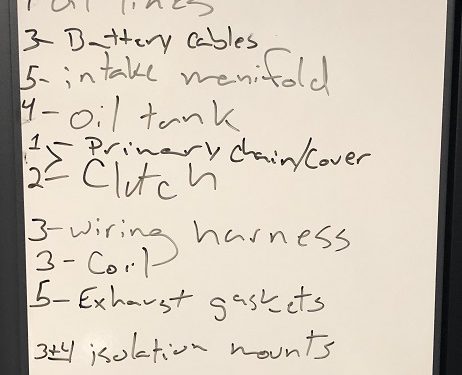 lines
3- Battery cables
5- intake manifold
4- oil tank
1- Primary chain/cover
2- Clutch
3- wiring harness
3- Coil
5- Exhaust gaskets
3+4 isolation mounts